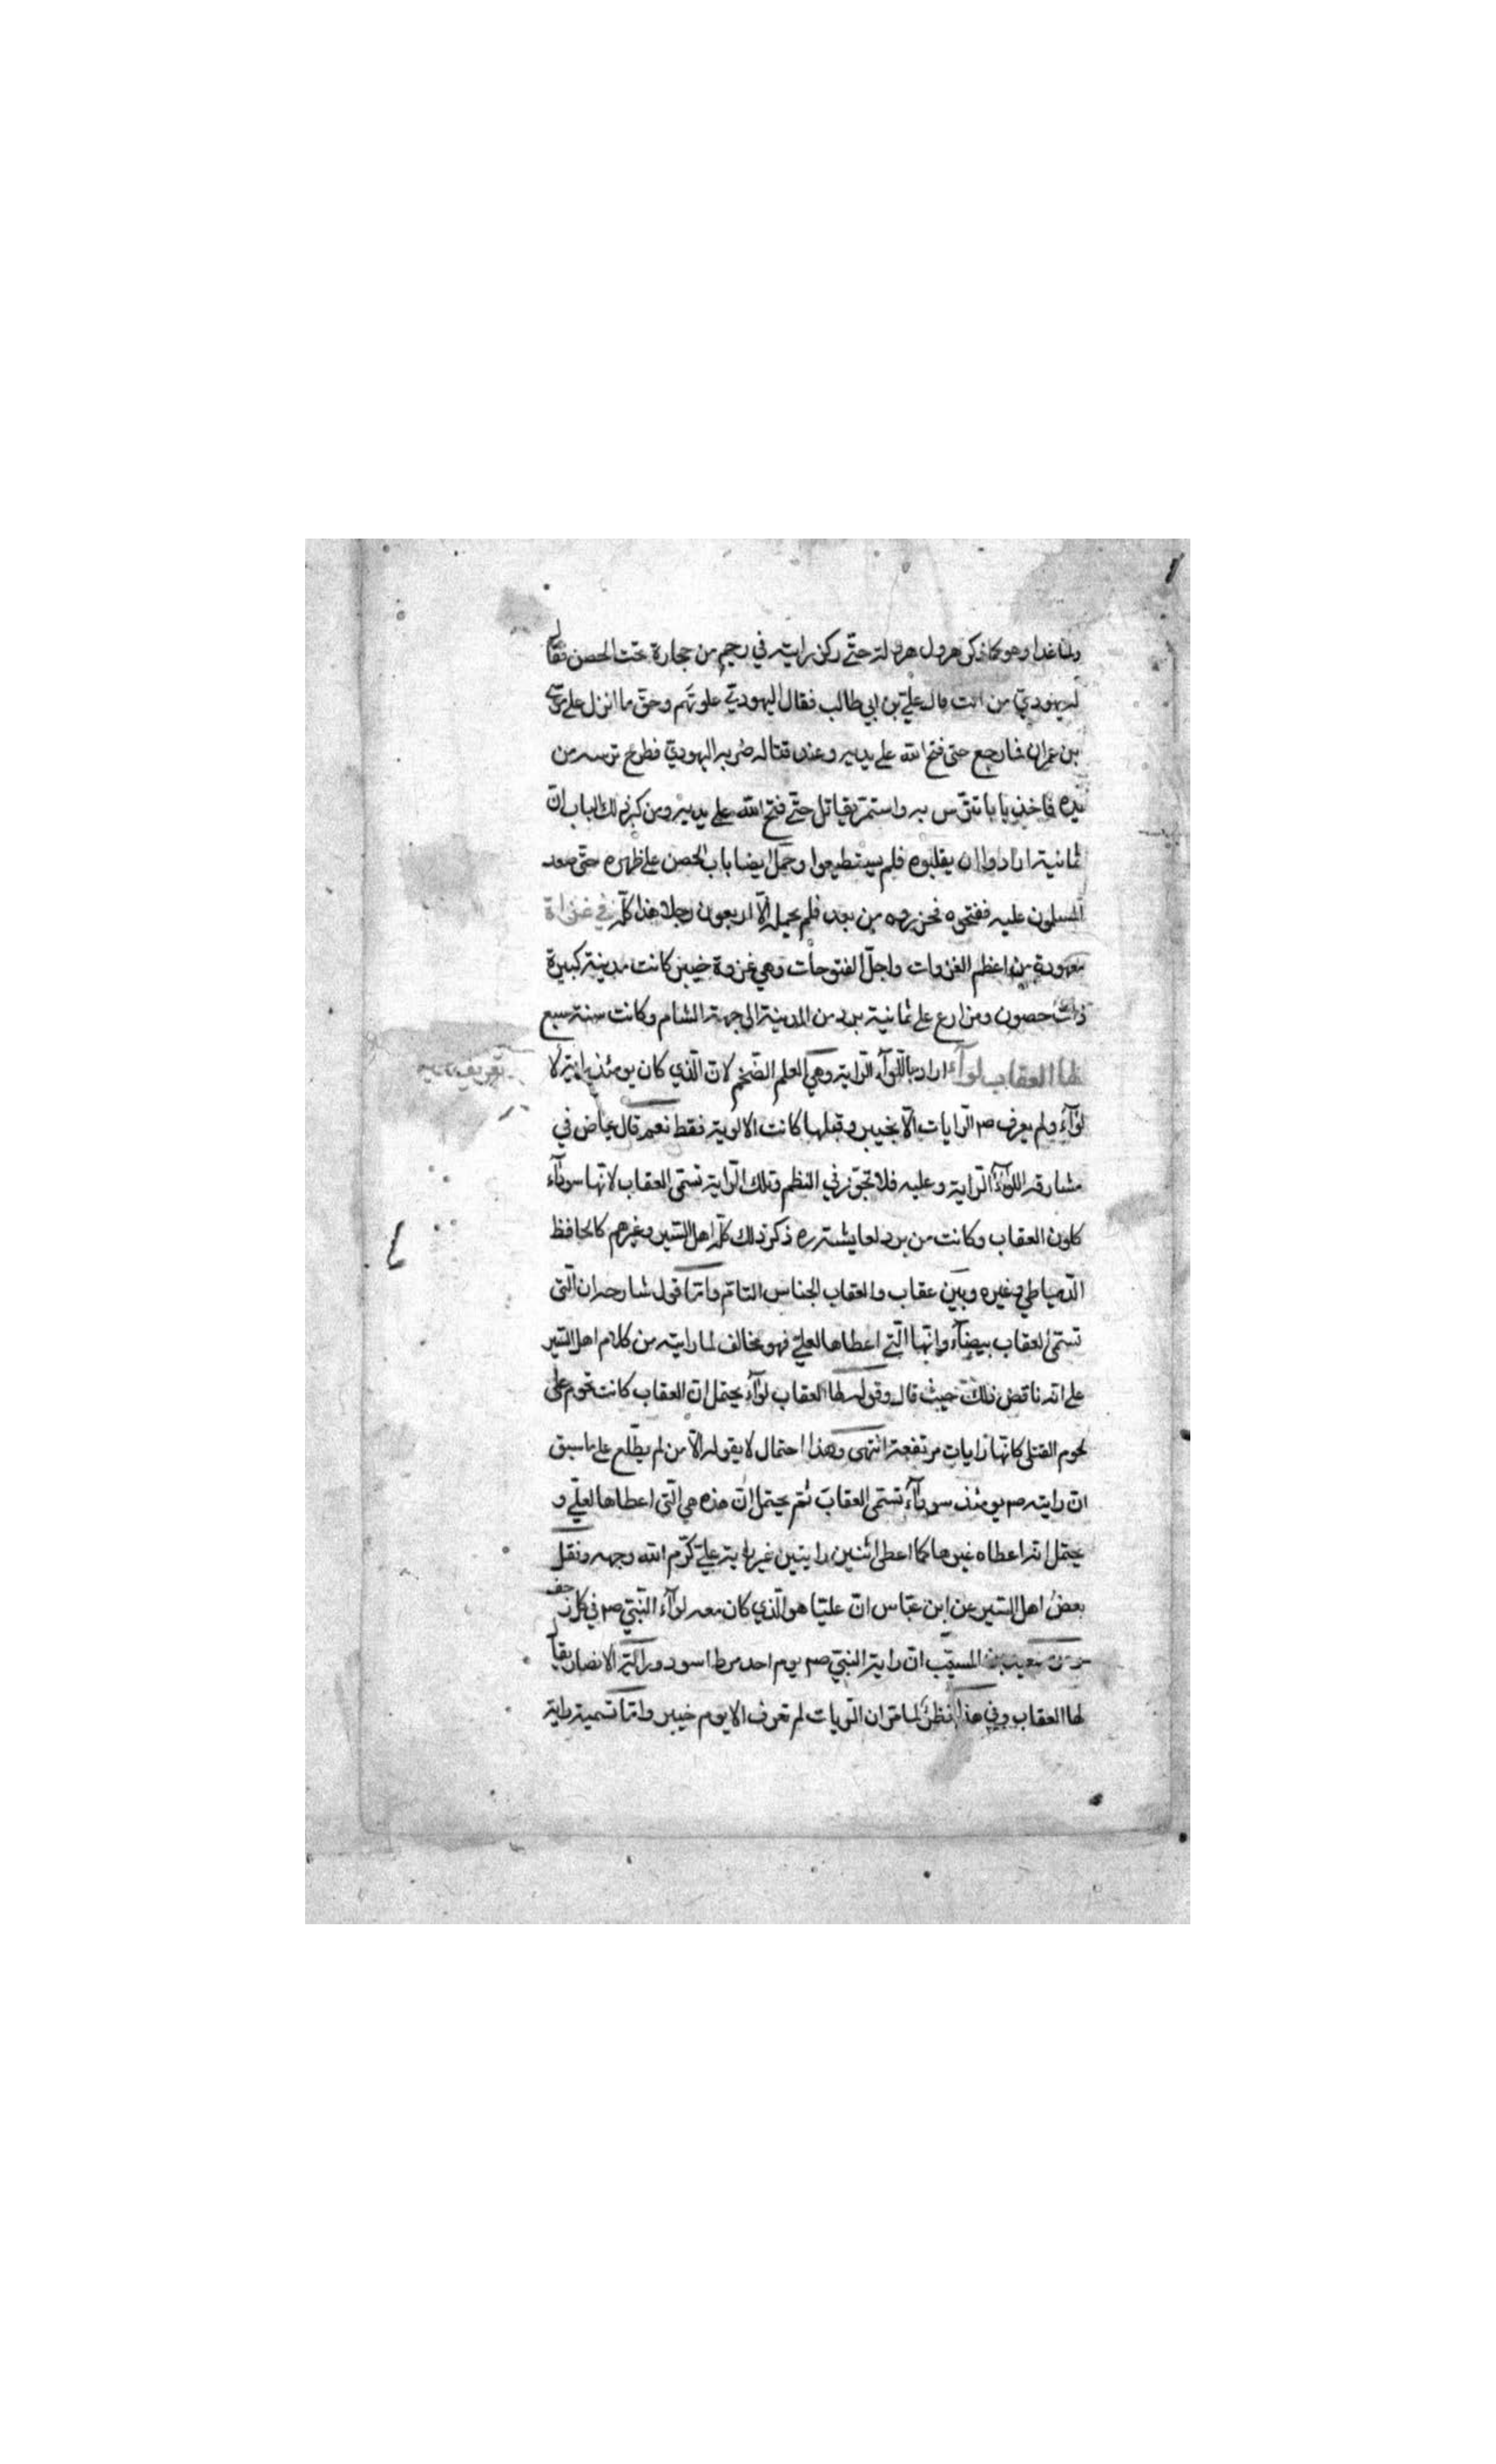 ولما غدا وهو كما ذكر هرول هرولة حتى ركز رايته في رجم من حجارة تحت الحصن فقال
له يهودي من انت قال علي بن ابي طالب فقال اليهودي علوتم وحق ما انزل على موسى
بن عمران فما رجع حتى فتح الله على يديه وعند قتاله ضربه اليهودي فطرح ترسه من
يده فاخذ بابا تترس به واستمر يقاتل حتى فتح الله على يديه ومن كبر ذلك الباب ان
ثمانية ارادوا ان يقلبوه فلم يستطيعوا وحمل ايضا باب الحصن على ظهره حتى صعد
المسلمون عليه ففتحوه فحزروه من بعد فلم يحمله الا اربعون رجلا هذا كله في غزاة
معهودة من اعظم الغزوات واجل الفتوحات وهي غزوة خيبر كانت مدينة كبيرة
ذات حصون ومزارع على ثمانية برد من المدينة الى جهة الشام وكانت سنة سبع
لها العقاب لواء اراد باللواء الراية وهي العلم الضخم لان الذي كان يومئذ راية لا
لواء ولم يعرف صم الرايات الا بخيبر وقبلها كانت الالوية فقط نعم قال عياض في
مشارقه اللواء الراية وعليه فلا تجوز في النظم وتلك الراية تسمى العقاب لانها سوداء
كلون العقاب وكانت من برد لعايشة ره ذكر ذلك كله اهل السير وغيرهم كالحافظ
الدمياطي وغيره وبين عقاب والعقاب الجناس التام واما قول شارح ان التي
تسمى العقاب بيضاء وانها التي اعطاها لعلي فهو مخالف لما رايته من كلام اهل السير
على انه ناقض ذلك حيث قال وقوله لها العقاب لواء يحتمل ان العقاب كانت تحوم على
لحوم القتلى كانها رايات مرتفعة انتهى وهذا احتمال لا يقوله الا من لم يطلع على ما سبق
ان رايته صم يومئذ سوداء تسمى العقاب نعم يحتمل ان هذه هي التي اعطاها لعلي و
يحتمل انه اعطاه غيرها كما اعطى اثنين رايتين غير راية علي كرم الله وجهه ونقل
بعض اهل السير عن ابن عباس ان عليا هو الذي كان معه لواء النبي صم في كل زحف
وعن سعيد بن المسيب ان راية النبي صم يوم احد مرط اسود وراية الانصار يقال
لها العقاب وفي هذا نظر لما مر ان الرايات لم تعرف الا يوم خيبر واما تسمية راية